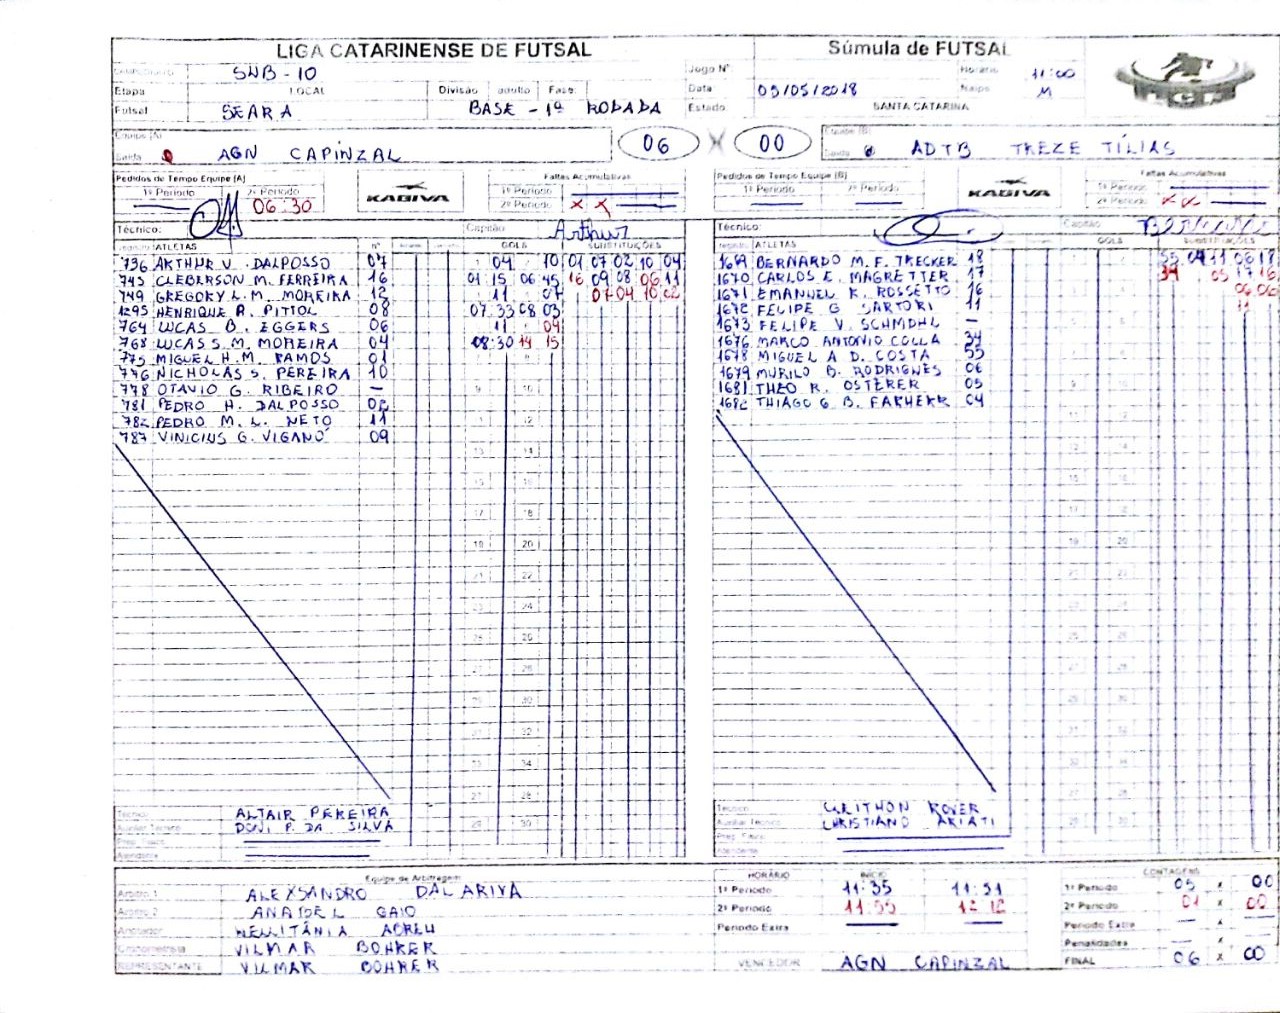 LIGA CATARINENSE DE FUTSAL
Súmula de FUTSAL
SUB - 10
Jogo Nº
Horário 11:00
Etapa LOCAL Divisão adulto Fase:
Data: 05/05/2018
Naipe M
Futsal SEARA BASE - 1ª RODADA
Estado SANTA CATARINA
Equipe (A)
Saída AGN CAPINZAL
06 X 00
Equipe (B)
Saída ADTB TREZE TÍLIAS
Pedidos de Tempo Equipe (A)
1º Período 2º Período
06:30
KAGIVA
Faltas Acumulativas
1º Período
2º Período X X
Pedidos de Tempo Equipe (B)
1º Período 2º Período
KAGIVA
Faltas Acumulativas
1º Período
2º Período X X
Técnico: Capitão Arthur
ATLETAS Nº GOLS SUBSTITUIÇÕES
736 ARTHUR V. DALPOSSO 07 04 10 01 07 02 10 04
745 CLEBERSON M. FERREIRA 16 01 15 06 45 16 09 08 06 11
749 GREGORY L. M. MOREIRA 12 11 07 07 04 10 02
1295 HENRIQUE A. PITIOL 08 07 33 08 03
764 LUCAS B. EGGERS 06 11 09
768 LUCAS S. M. MOREIRA 04 08:30 14 15
775 MIGUEL H. M. RAMOS 01
776 NICHOLAS S. PEREIRA 10
778 OTAVIO G. RIBEIRO —
781 PEDRO H. DALPOSSO 02
782 PEDRO M. L. NETO 11
787 VINICIUS G. VIGANÓ 09
Técnico ALTAIR PEREIRA
Auxiliar Técnico DONI P. DA SILVA
Prep. Físico
Atendente
Técnico: Capitão
ATLETAS GOLS SUBSTITUIÇÕES
1669 BERNARDO M. F. TRECKER 18 55 04 11 06 18
1670 CARLOS E. MAGRETTER 17 34 05 17 16
1671 EMANUEL K. ROSSETTO 16 06 06
1672 FELIPE G SARTORI 11 11
1673 FELIPE V. SCHMOHL —
1676 MARCO ANTONIO COLLA 34
1678 MIGUEL A D. COSTA 55
1679 MURILO B. RODRIGNES 06
1681 THEO R. OSTERER 05
1682 THIAGO G B. FARHERR 04
Técnico CLEITHON ROVER
Auxiliar Técnico CHRISTIANO ARIATI
Prep. Físico
Atendente
Equipe de Arbitragem
Árbitro 1 ALEXSANDRO DAL ARIVA
Árbitro 2 ANATOEL GAIO
Anotador HELLITÂNIA ABREU
Cronometrista VILMAR BOHRER
REPRESENTANTE VILMAR BOHRER
HORÁRIO INÍCIO
1º Período 11:35 11:51
2º Período 11:55 12:12
Período Extra
VENCEDOR AGN CAPINZAL
CONTAGENS
1º Período 05 x 00
2º Período 01 x 00
Período Extra — x
Penalidades — x
FINAL 06 x 00